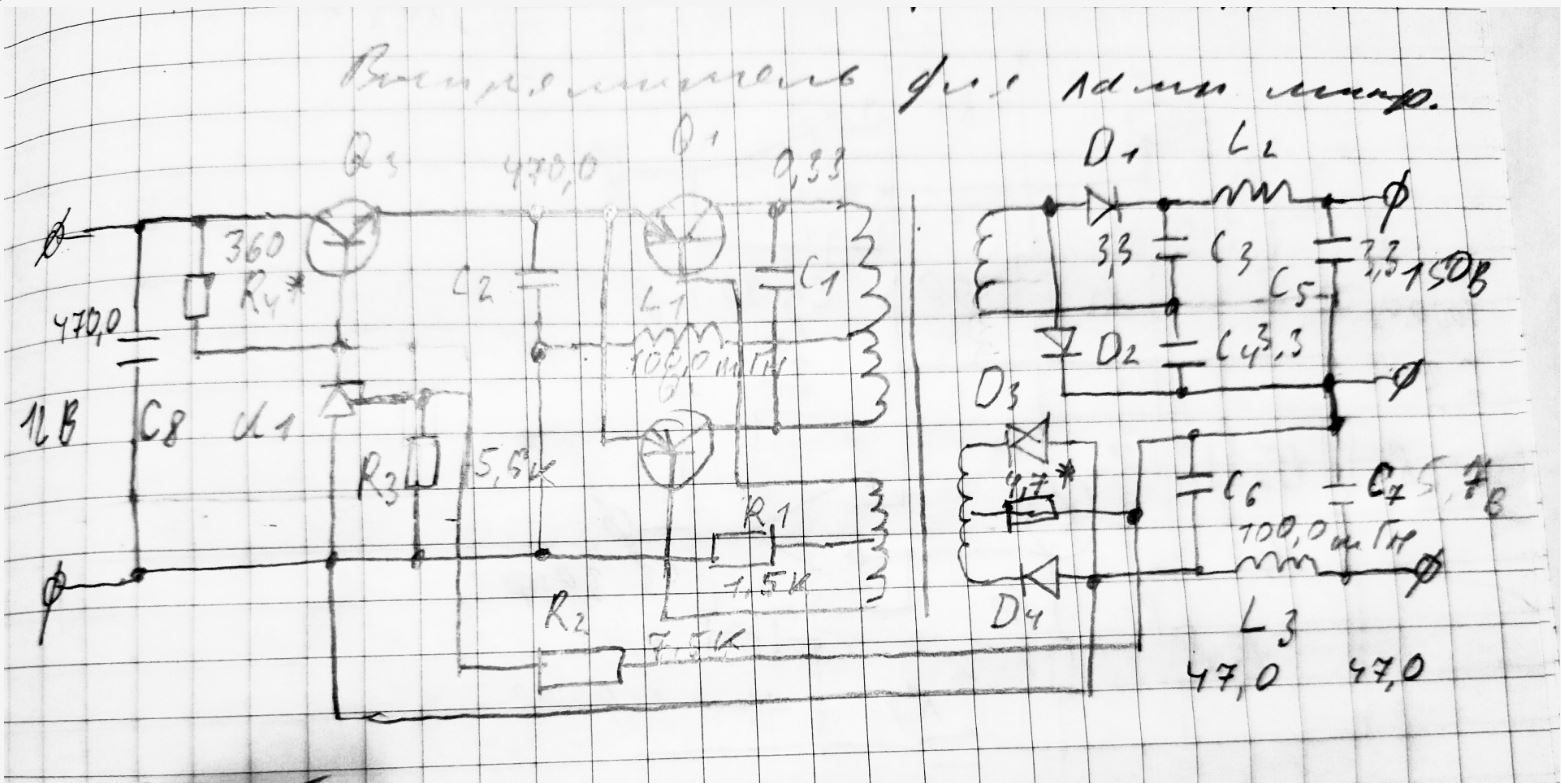 Выпрямитель для
Q3
470,0
Q1
0,33
D1
L2
360
R4*
C2
L1
C1
3,3
C3
C5
3,3
150В
470,0
100,0 mГн
D2
C4
3,3
12В
C8
U1
D3
R3
5,6К
4,7*
C6
C7
5,7В
R1
100,0 mГн
1,5К
D4
L3
R2
7,5К
47,0
47,0